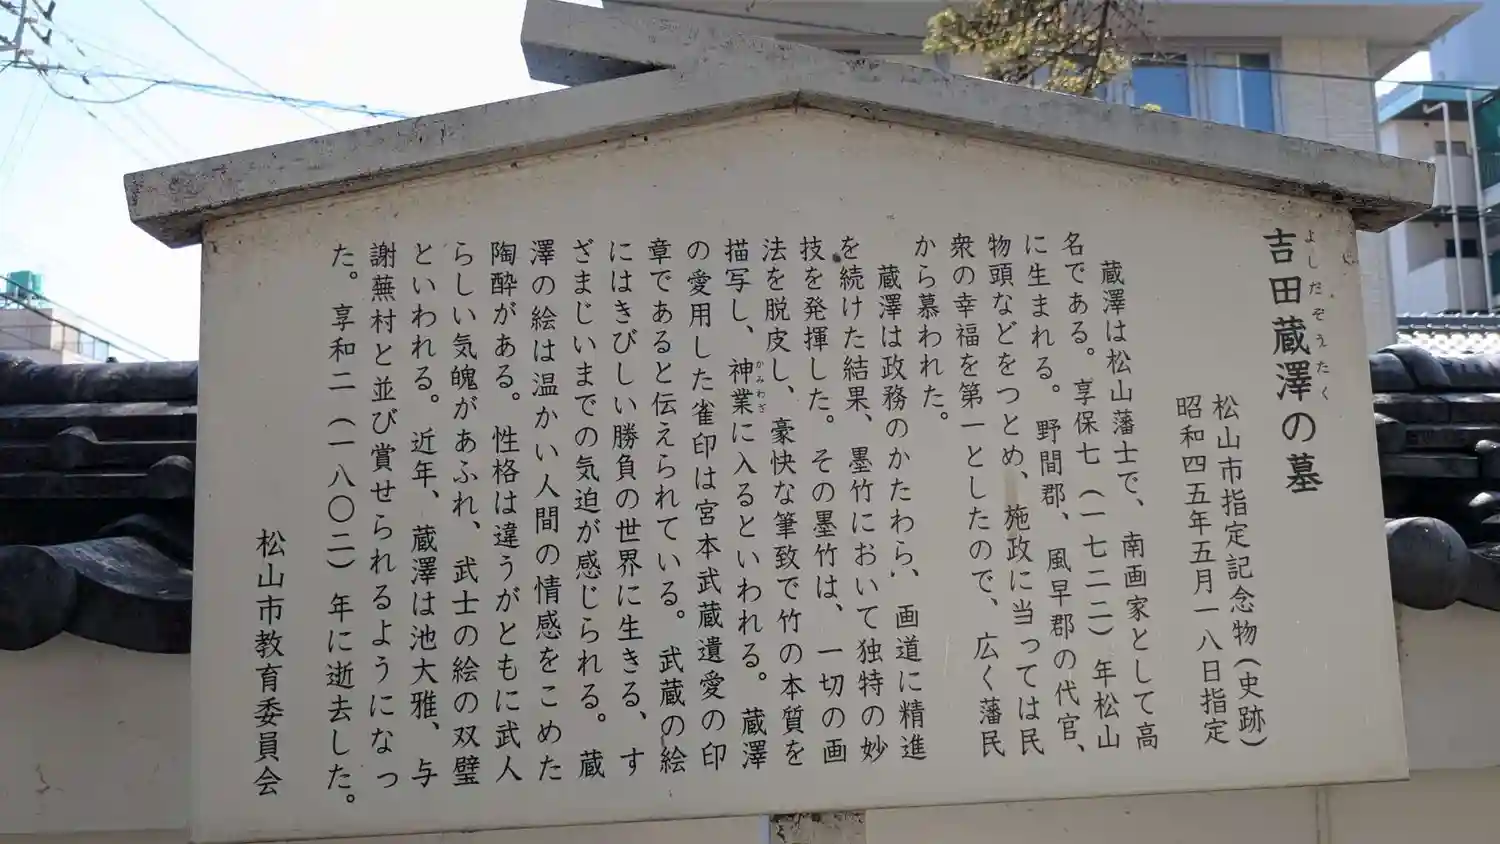 吉田蔵澤の墓
よしだぞうたく
松山市指定記念物(史跡)
昭和四五年五月一八日指定
蔵澤は松山藩士で、南画家として高
名である。享保七(一七二二)年松山
に生まれる。野間郡、風早郡の代官、
物頭などをつとめ、施政に当っては民
衆の幸福を第一としたので、広く藩民
から慕われた。
蔵澤は政務のかたわら、画道に精進
を続けた結果、墨竹において独特の妙
技を発揮した。その墨竹は、一切の画
法を脱皮し、豪快な筆致で竹の本質を
描写し、神業に入るといわれる。蔵澤
かみわざ
の愛用した雀印は宮本武蔵遺愛の印
章であると伝えられている。武蔵の絵
にはきびしい勝負の世界に生きる、す
ざまじいまでの気迫が感じられる。蔵
澤の絵は温かい人間の情感をこめた
陶酔がある。性格は違うがともに武人
らしい気魄があふれ、武士の絵の双璧
といわれる。近年、蔵澤は池大雅、与
謝蕪村と並び賞せられるようになっ
た。享和二(一八〇二)年に逝去した。
松山市教育委員会